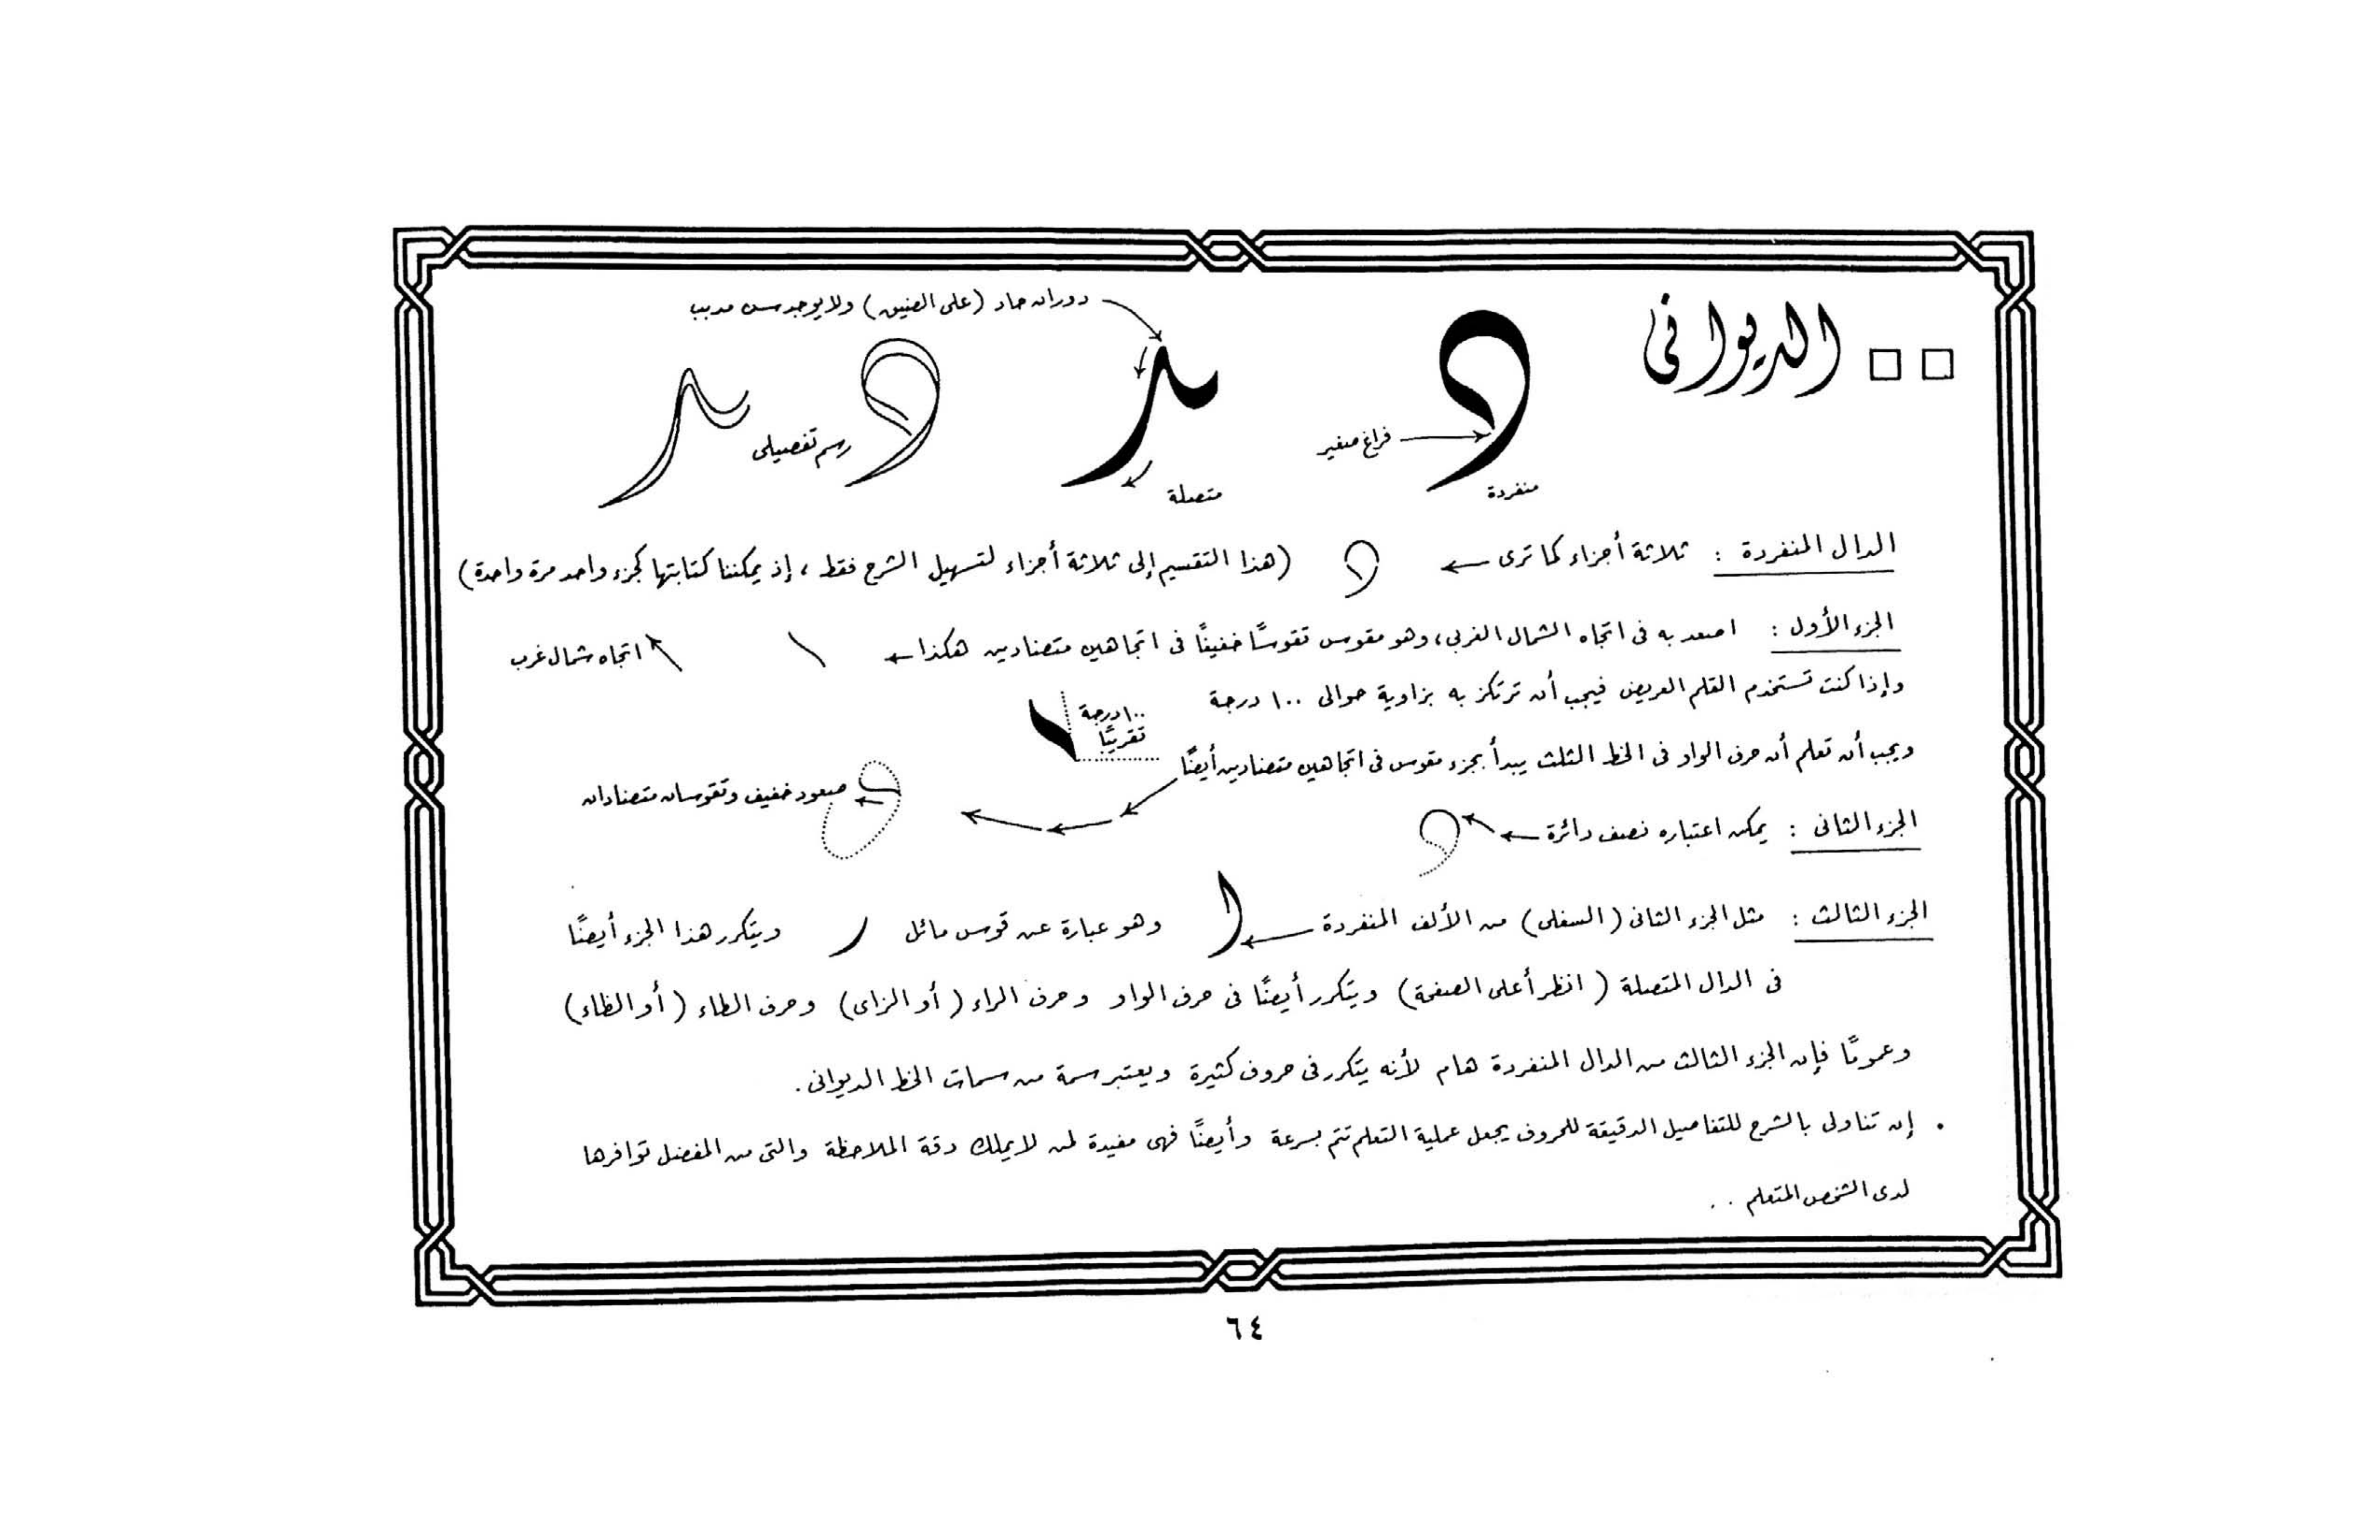 الديوانى
دوران حاد (على الضيق) ولا يوجد سن مدبب
فراغ صغير
رسم تفصيلى
منفردة
متصلة
الدال المنفردة : ثلاثة أجزاء كما ترى (هذا التقسيم إلى ثلاثة أجزاء لتسهيل الشرح فقط ، إذ يمكننا كتابتها كجزء واحد مرة واحدة)
الجزء الأول : اصعد به فى اتجاه الشمال الغربى ، وهو مقوس تقوسًا خفيفًا فى اتجاهين متضادين هكذا
اتجاه شمال غرب
وإذا كنت تستخدم القلم العريض فيجب أن ترتكز به بزاوية حوالى ١٠٠ درجة
١٠٠ درجة
تقريبًا
ويجب أن تعلم أن حرف الواو فى الخط الثلث يبدأ بجزء مقوس فى اتجاهين متضادين أيضًا
صعود خفيف وتقوسان متضادان
الجزء الثانى : يمكن اعتباره نصف دائرة
الجزء الثالث : مثل الجزء الثانى (السفلى) من الألف المنفردة وهو عبارة عن قوس مائل ويتكرر هذا الجزء أيضًا
فى الدال المتصلة (انظر أعلى الصفحة) ويتكرر أيضًا فى حرف الواو وحرف الراء (أو الزاى) وحرف الطاء (أو الظاء)
وعمومًا فإن الجزء الثالث من الدال المنفردة هام لأنه يتكرر فى حروف كثيرة ويعتبر سمة من سمات الخط الديوانى .
. إن تناولى بالشرح للتفاصيل الدقيقة للحروف يجعل عملية التعلم تتم بسرعة وأيضًا فهى مفيدة لمن لا يملك دقة الملاحظة والتى من المفضل توافرها
لدى الشخص المتعلم . .
٦٤